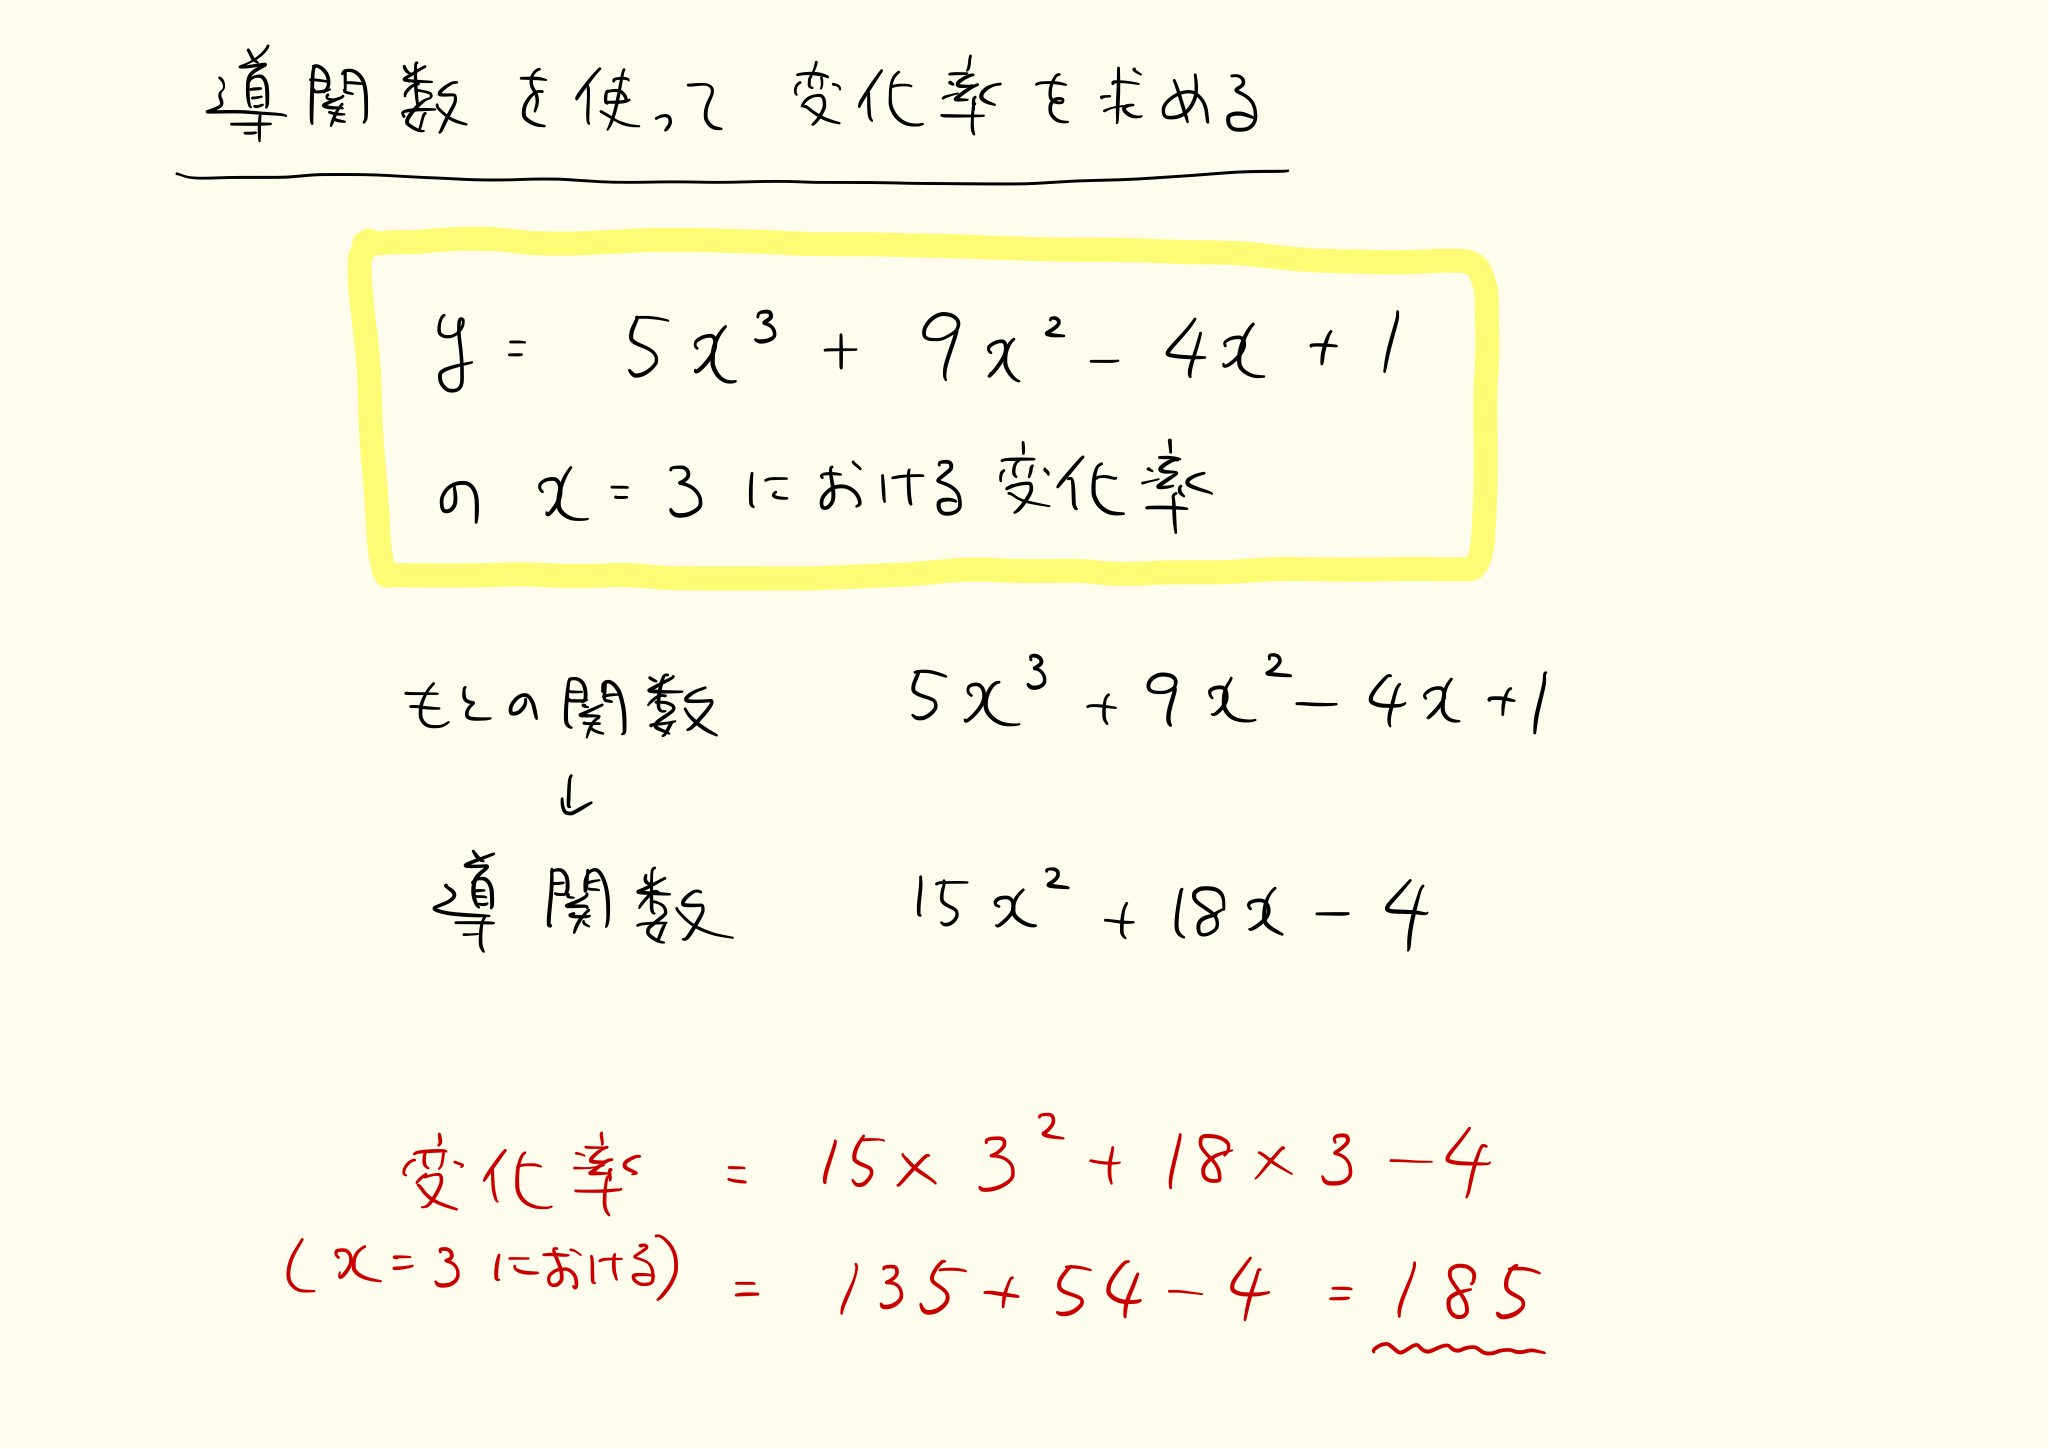 導関数を使って変化率を求める
y = 5x³ + 9x² - 4x + 1
の x = 3 における変化率
もとの関数 5x³ + 9x² - 4x + 1
↓
導関数 15x² + 18x - 4
変化率 = 15 × 3² + 18 × 3 - 4
(x = 3 における) = 135 + 54 - 4 = 185